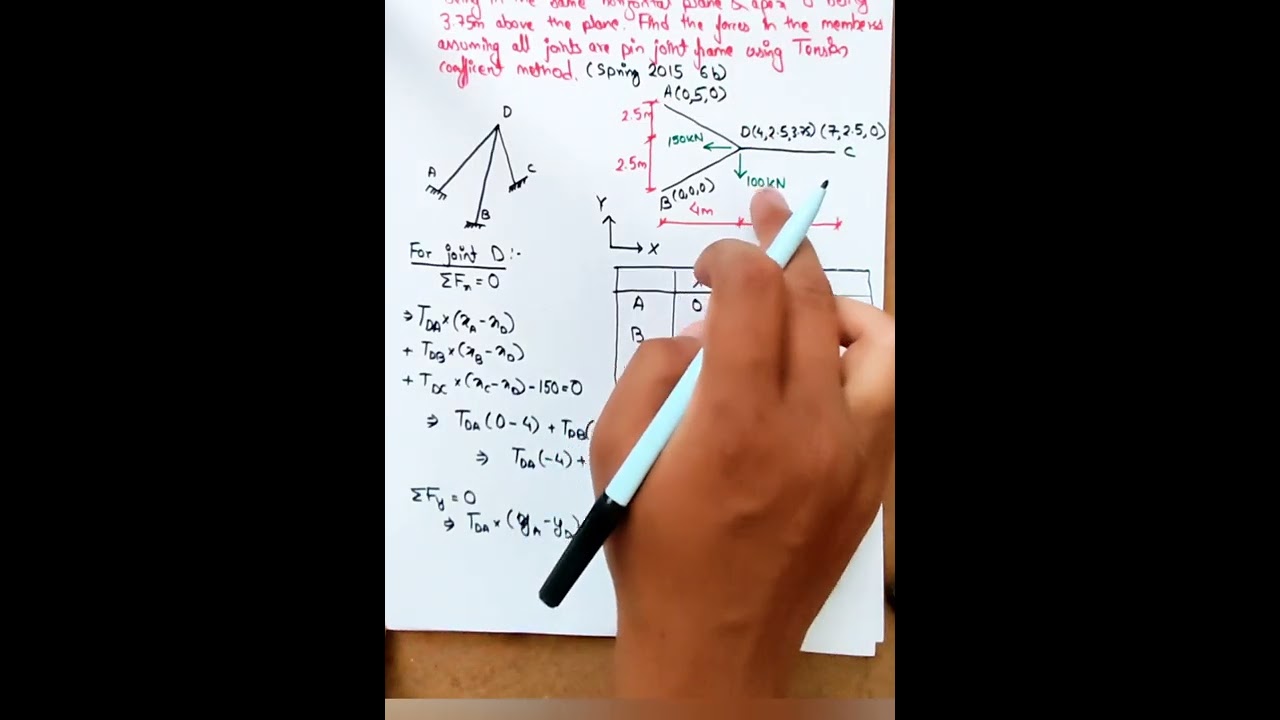 in the same horizontal plane & apex D being
3.75m above the plane. Find the forces in the members
assuming all joints are pin joint frame using Tension
coefficient method. (Spring 2015 6b)
A(0,5,0)
2.5m
150KN
D(4,2.5,3.75) (7,2.5,0)
C
2.5m
100KN
B(0,0,0)
4m
D
A
C
B
Y
X
For joint D:-
ΣFx = 0
⇒ TDA × (xA - xD)
+ TDB × (xB - xD)
+ TDC × (xC - xD) - 150 = 0
⇒ TDA (0-4) + TDB(
⇒ TDA (-4) +
ΣFy = 0
⇒ TDA × (yA - yD)
A 0
B